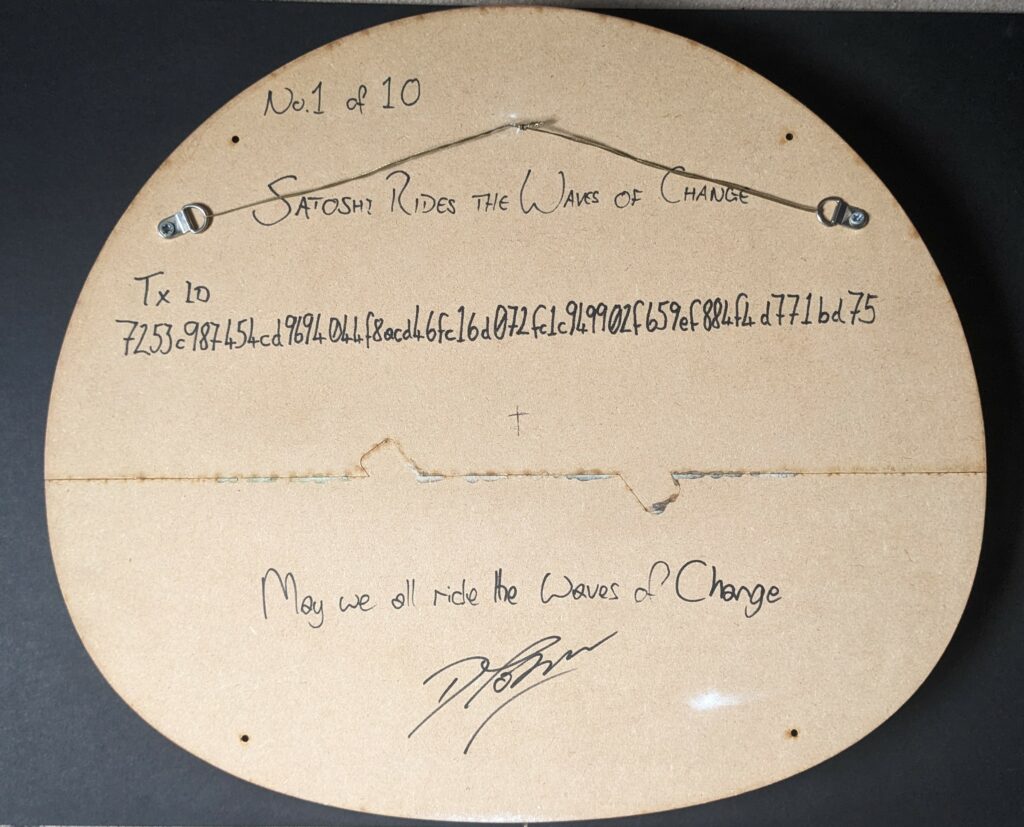 No.1 of 10
SATOSHI RIDES THE WAVES OF CHANGE
Tx ID
7253c987454cd9694044f8acd46fc16d072fc1c949902f659ef884f4d771bd75
May we all ride the Waves of Change